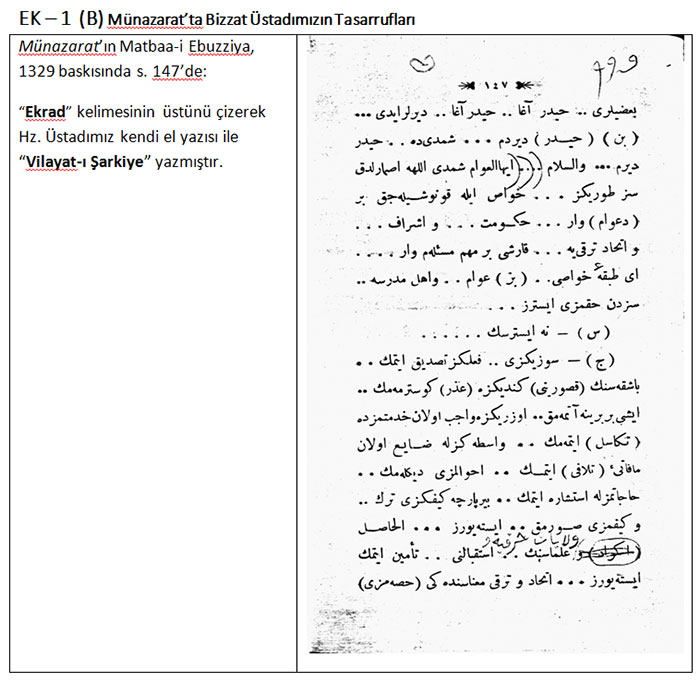 EK – 1 (B) Münazarat’ta Bizzat Üstadımızın Tasarrufları
Münazarat’ın Matbaa-i Ebuzziya,
1329 baskısında s. 147’de:
“Ekrad” kelimesinin üstünü çizerek
Hz. Üstadımız kendi el yazısı ile
“Vilayat-ı Şarkiye” yazmıştır.
١٤٧
بعضیلری .. حیدر آغا .. حیدر آغا .. دیرلرایدی ...
(بن) (حیـدر) دیردم ... شمدی‌ده .. حیدر
دیرم ... والسلام .... ایهاالعوام شمدی اللهه اصمارلدق
سز طوریکز ... خواص ایله قونوشیله‌جق بر
(دعوام) وار ... حکـومت ... و اشراف ...
و اتحاد ترقی‌یه ... قارشی بر مهم مسئله‌م وار ....
ای طبقهٔ خواصی.. (بز) عوام .. واهل مدرسه ..
سزدن حقمزی ایسترز ...
(س) — نه ایسترسك ......
(ج) — سوزیکزی .. فعلکز تصدیق ایتمك ..
باشقه‌سنك (قصورینی) کندیکزه (عذر) کوسترمه‌مك ..
ایشی بربرینه آتمه‌مق .. اوزریکزه واجب اولان خدمتمزده
(تکاسل) ایتمه‌مك .. واسطه کزله ضـایع اولان
مافاتی (تلافی) ایتمـك .. احوالمزی دیکله‌مك ..
حاجاتمزله استشاره ایتمك .. بیرپارچه کیفکزی ترك ..
و کیفمزی صـورمق .. ایسته‌یورز ... الحاصل
ولایات شرقیه
(اکراد) و علماسنك .. استقبالنی .. تأمین ایتمك
ایسته‌یورز ... اتحاد و ترقی معناسنده کی (حصه‌مزی)